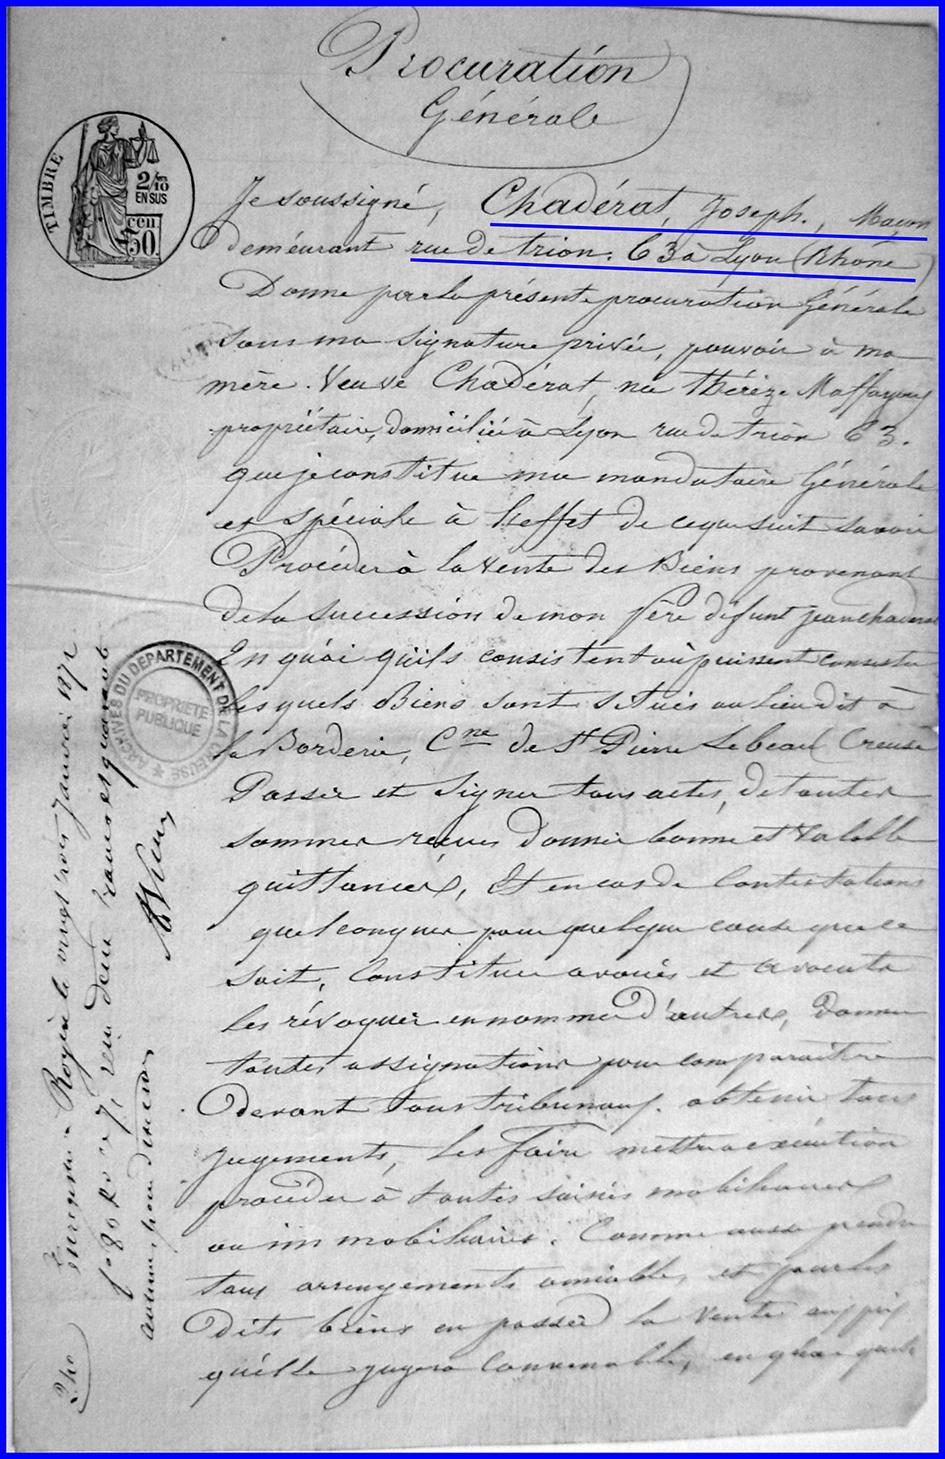 Procuration
Générale
TIMBRE
2/10
EN SUS
50 cen
Je soussigné, Chadérat, Joseph., Maçon
demeurant rue de trion. 63 à Lyon (Rhône)
Donne par la présente procuration Générale
sous ma signature privée, pouvoir à ma
mère. Veuve Chadérat, née thérèze
propriétaire, domiciliée à Lyon rue de trion 63.
que je constitue ma mandataire Générale
et spéciale à l'effet de ce qui suit savoir
Procéder à la vente des Biens provenant
de la succession de mon Père défunt jean chaderat
En quoi qu'ils consistent ou puissent consister
lesquels Biens sont situés au lieu dit à
la Borderie, Cne de St Pierre Lebeau (Creuse
Passer et Signer tous actes, de toutes
sommes reçues donner bonne et valable
quittances, Et en cas de Contestations
quelconques pour quelque cause que ce
soit, Constituer avoués et avocats
les révoquer en nommer d'autres, Donner
toutes assignations pour comparaitre
devant tous tribunaux. obtenir tous
jugements, les faire mettre a exécution
procéder à toutes saisies mobiliaires
ou immobiliaires. Comme aussi prendre
tous arrangements amiables, et pour les
Dits biens en passer la vente au prix
qu'elle jugera convenable, en
ARCHIVES DU DEPARTEMENT DE LA CREUSE
PROPRIETE
PUBLIQUE
Enregistré à Royère le vingt trois Janvier 1872
f° 80 Ro Ce 7, reçu deux francs quarante
centimes, pour décimes